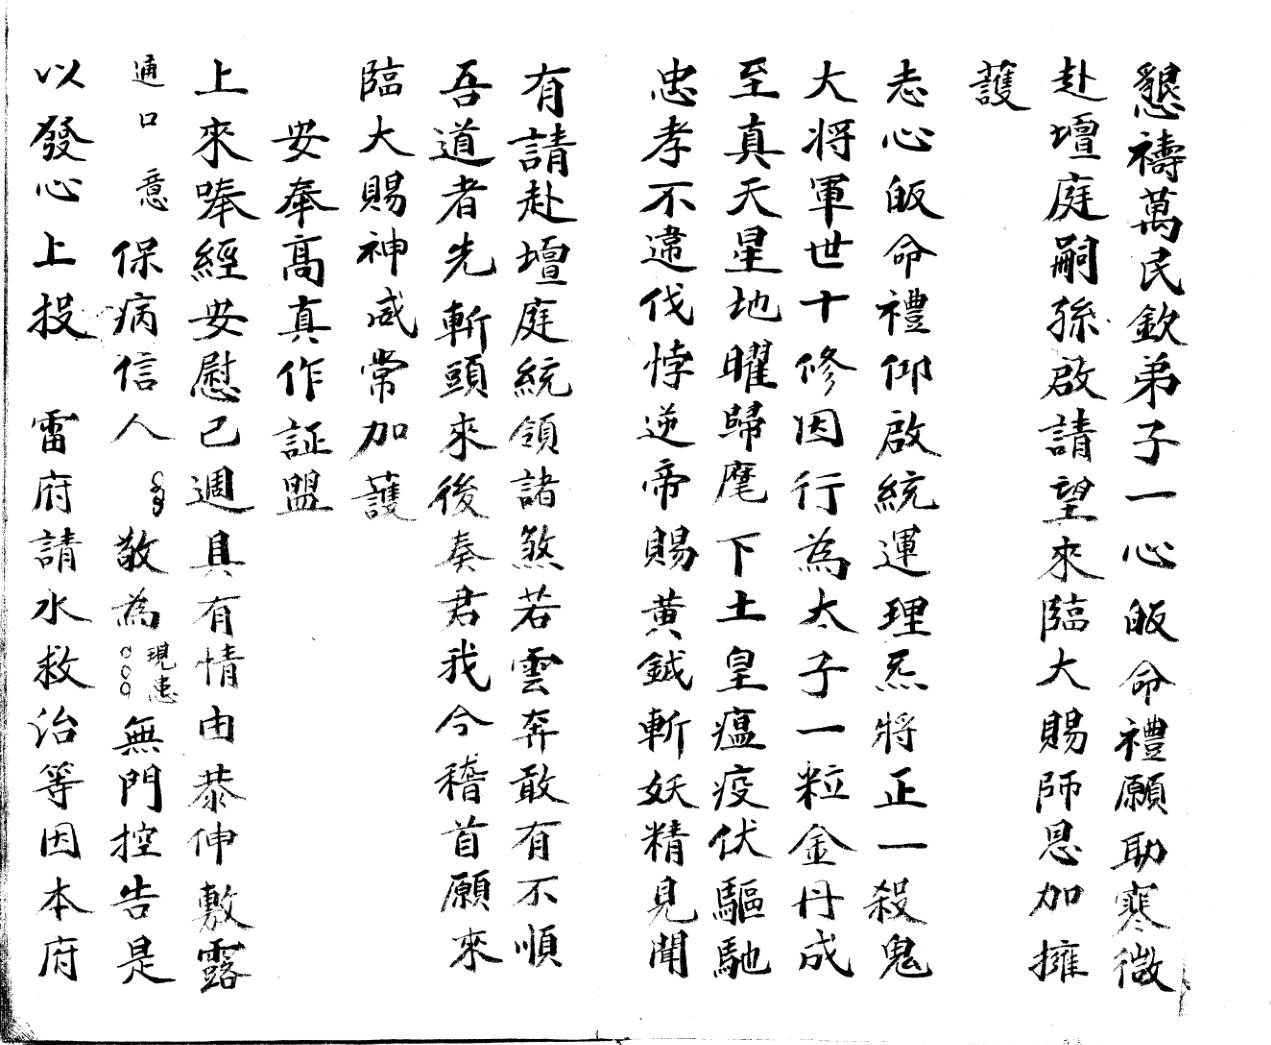 懇禱萬民欽弟子一心皈命禮願助寒微
赴壇庭嗣孫啟請望來臨大賜師恩加擁
護
志心皈命禮仰啟統運理炁將正一殺鬼
大将軍世十修因行為太子一粒金丹成
至真天星地曜歸麾下土皇瘟疫伏驅馳
忠孝不違伐悖逆帝賜黃鉞斬妖精見聞
有請赴壇庭統領諸煞若雲奔敢有不順
吾道者先斬頭來後奏君我今稽首願來
臨大賜神咸常加護
安奉高真作証盟
上來唪經安慰已週具有情由恭伸敷露
通口意保病信人敬為現患無門控告是
以發心上投 雷府請水救治等因本府